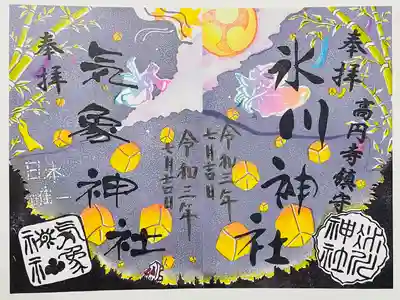 奉拝
高円寺鎮守
氷川神社
令和三年
七月吉日
氷川神社
奉拝
気象神社
令和三年
七月吉日
日本
唯一
気象神社